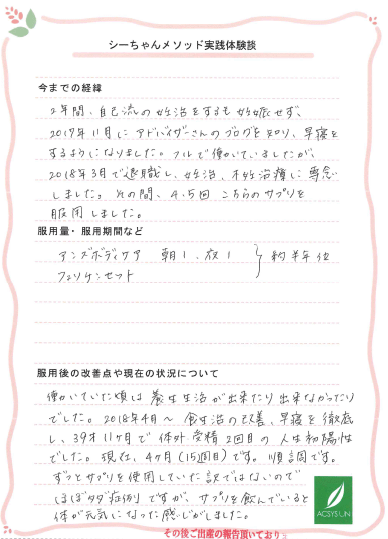 シーちゃんメソッド実践体験談
今までの経緯
2年間、自己流の妊活をするも妊娠せず、
2017年11月にアドバイザーさんのブログを知り、早寝を
するようになりました。フルで働いていましたが、
2018年3月で退職し、妊活、不妊治療に専念
しました。その間、4、5回こちらのサプリを
服用しました。
服用量・服用期間など
アンズボディケア 朝1、夜1 約半年位
フェリケンセット
服用後の改善点や現在の状況について
働いていた頃は養生生活が出来たり出来なかったり
でした。2018年4月〜食生活の改善、早寝を徹底
し、39才11ヶ月で体外受精2回目の人生初陽性
でした。現在、4ヶ月(15週目)です。順調です。
ずっとサプリを使用していた訳ではないので
ほぼタダ症例ですが、サプリを飲んでいると
体が元気になった感じがしました。
ACSYSUN
その後ご出産の報告頂いております